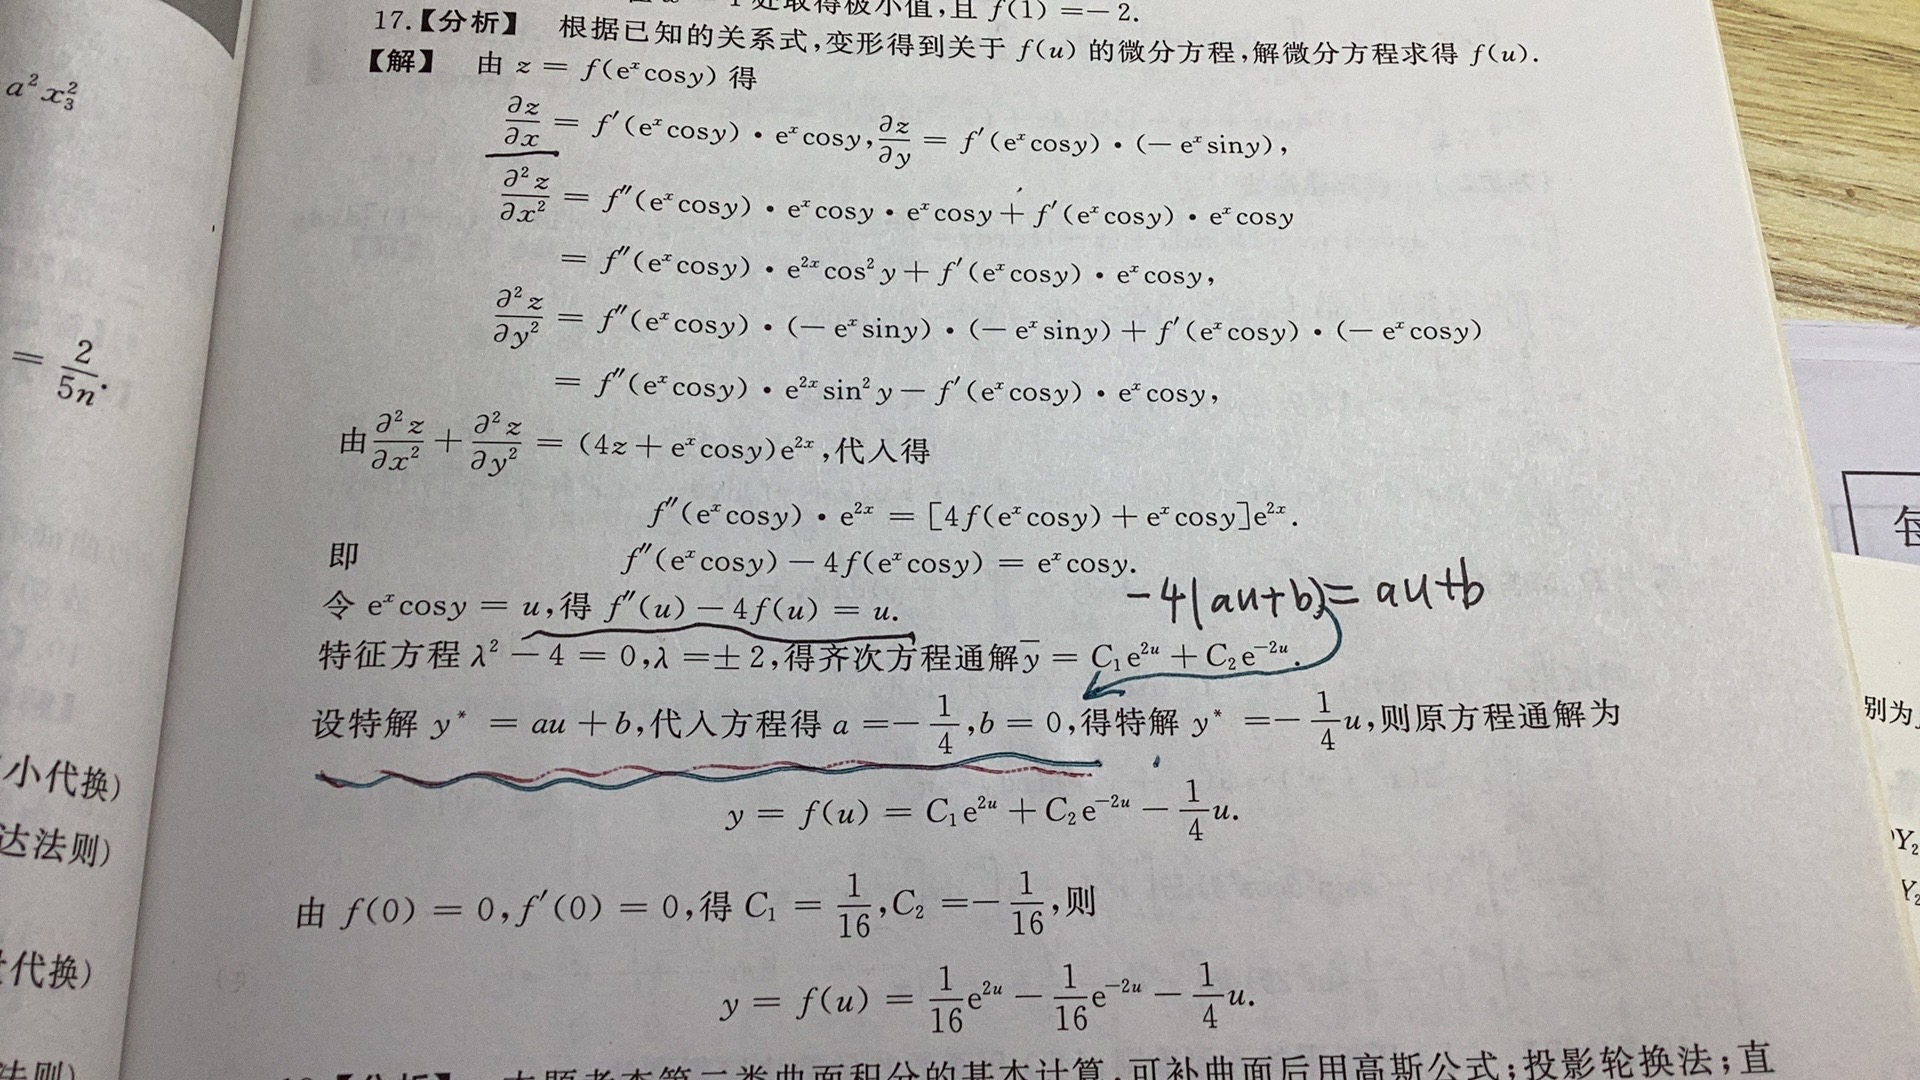 处取得极小值,且 f(1) =− 2.
17.【分析】 根据已知的关系式,变形得到关于 f(u) 的微分方程,解微分方程求得 f(u).
【解】 由 z = f(eˣcosy) 得
a²x₃²
∂z/∂x = f′(eˣcosy) · eˣcosy, ∂z/∂y = f′(eˣcosy) · (− eˣsiny),
∂²z/∂x² = f″(eˣcosy) · eˣcosy · eˣcosy + f′(eˣcosy) · eˣcosy
= f″(eˣcosy) · e²ˣcos²y + f′(eˣcosy) · eˣcosy,
∂²z/∂y² = f″(eˣcosy) · (− eˣsiny) · (− eˣsiny) + f′(eˣcosy) · (− eˣcosy)
= 2/5n.
= f″(eˣcosy) · e²ˣsin²y − f′(eˣcosy) · eˣcosy,
由 ∂²z/∂x² + ∂²z/∂y² = (4z + eˣcosy)e²ˣ,代入得
f″(eˣcosy) · e²ˣ = [4f(eˣcosy) + eˣcosy]e²ˣ.
即 f″(eˣcosy) − 4f(eˣcosy) = eˣcosy.
-4(au+b)= au+b
令 eˣcosy = u,得 f″(u) − 4f(u) = u.
特征方程 λ² − 4 = 0,λ =± 2,得齐次方程通解 ȳ = C₁e²ᵘ + C₂e⁻²ᵘ.
设特解 y* = au + b,代入方程得 a =− 1/4,b = 0,得特解 y* =− 1/4 u,则原方程通解为
别为
小代换)
y = f(u) = C₁e²ᵘ + C₂e⁻²ᵘ − 1/4 u.
达法则)
Y₂
由 f(0) = 0,f′(0) = 0,得 C₁ = 1/16,C₂ =− 1/16,则
Y₂
代换)
y = f(u) = 1/16 e²ᵘ − 1/16 e⁻²ᵘ − 1/4 u.
法则)
【分析】 本题考查第二类曲面积分的基本计算,可补曲面后用高斯公式;投影轮换法;直